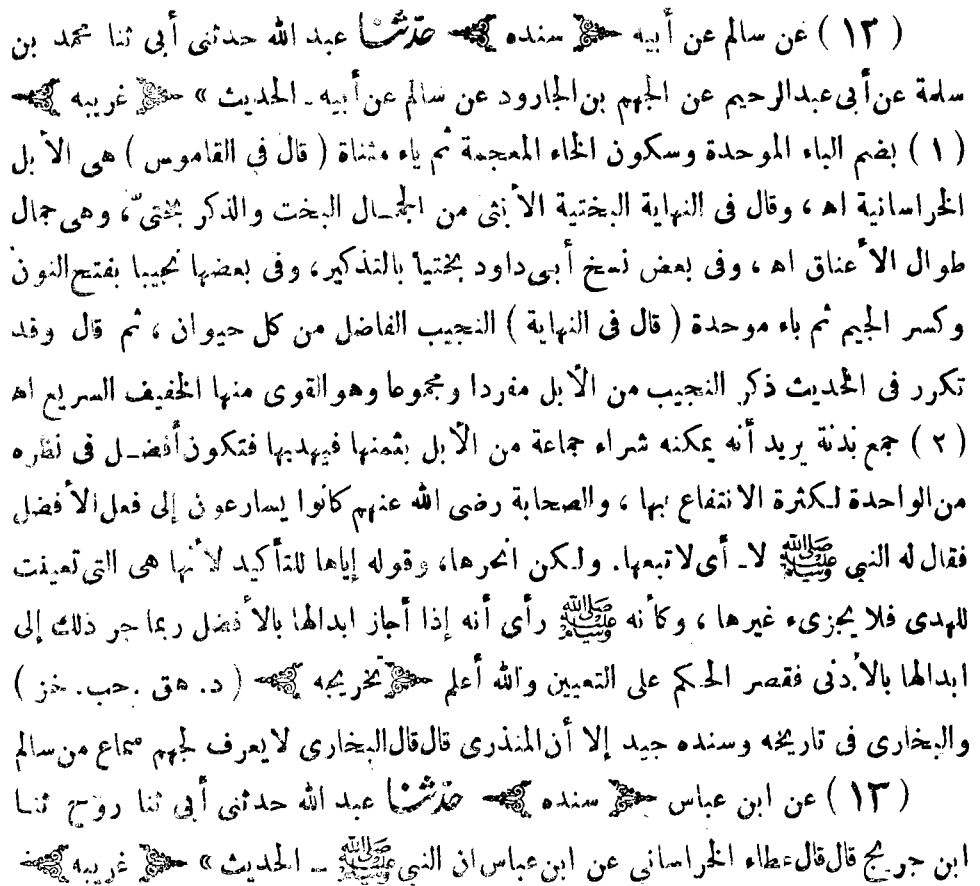 ( ١٣ ) عن سالم عن أبيه ﴿ سنده ﴾ حدثنا عبد الله حدثنى أبى ثنا محمد بن
سلمة عن أبى عبدالرحيم عن الجهم بن الجارود عن سالم عن أبيه ـ الحديث » ﴿ غريبه ﴾
( ١ ) بضم الباء الموحدة وسكون الخاء المعجمة ثم ياء مثناة ( قال فى القاموس ) هى الأبل
الخراسانية اه ، وقال فى النهاية البختية الأنثى من الجمال البخت والذكر بختىّ، وهى جمال
طوال الأعناق اه ، وفى بعض نسخ أبى داود بختيا بالتذكير، وفى بعضها نجيبا بفتح النون
وكسر الجيم ثم باء موحدة ( قال فى النهاية ) النجيب الفاضل من كل حيوان ، ثم قال وقد
تكرر فى الحديث ذكر النجيب من الأبل مفردا ومجموعا وهو القوى منها الخفيف السريع اه
( ٢ ) جمع بدنة يريد أنه يمكنه شراء جماعة من الأبل بثمنها فيهديها فتكون أفضل فى نظره
من الواحدة لكثرة الانتفاع بها ، والصحابة رضى الله عنهم كانوا يسارعون إلى فعل الأفضل
فقال له النبى ﷺ لا ـ أى لا تبعها. ولكن انحرها، وقوله إياها للتأكيد لأنها هى التى تعينت
للهدى فلا يجزىء غيرها ، وكأنه ﷺ رأى أنه إذا أجاز ابدالها بالأفضل ربما جر ذلك إلى
ابدالها بالأدنى فقصر الحكم على التعيين والله أعلم ﴿ تخريجه ﴾ ( د. هق .حب. خز )
والبخارى فى تاريخه وسنده جيد إلا أن المنذرى قال قال البخارى لا يعرف لجهم سماع من سالم
( ١٣ ) عن ابن عباس ﴿ سنده ﴾ حدثنا عبد الله حدثنى أبى ثنا روح ثنا
ابن جريج قال قال عطاء الخراسانى عن ابن عباس ان النبى ﷺ ـ الحديث » ﴿ غريبه ﴾